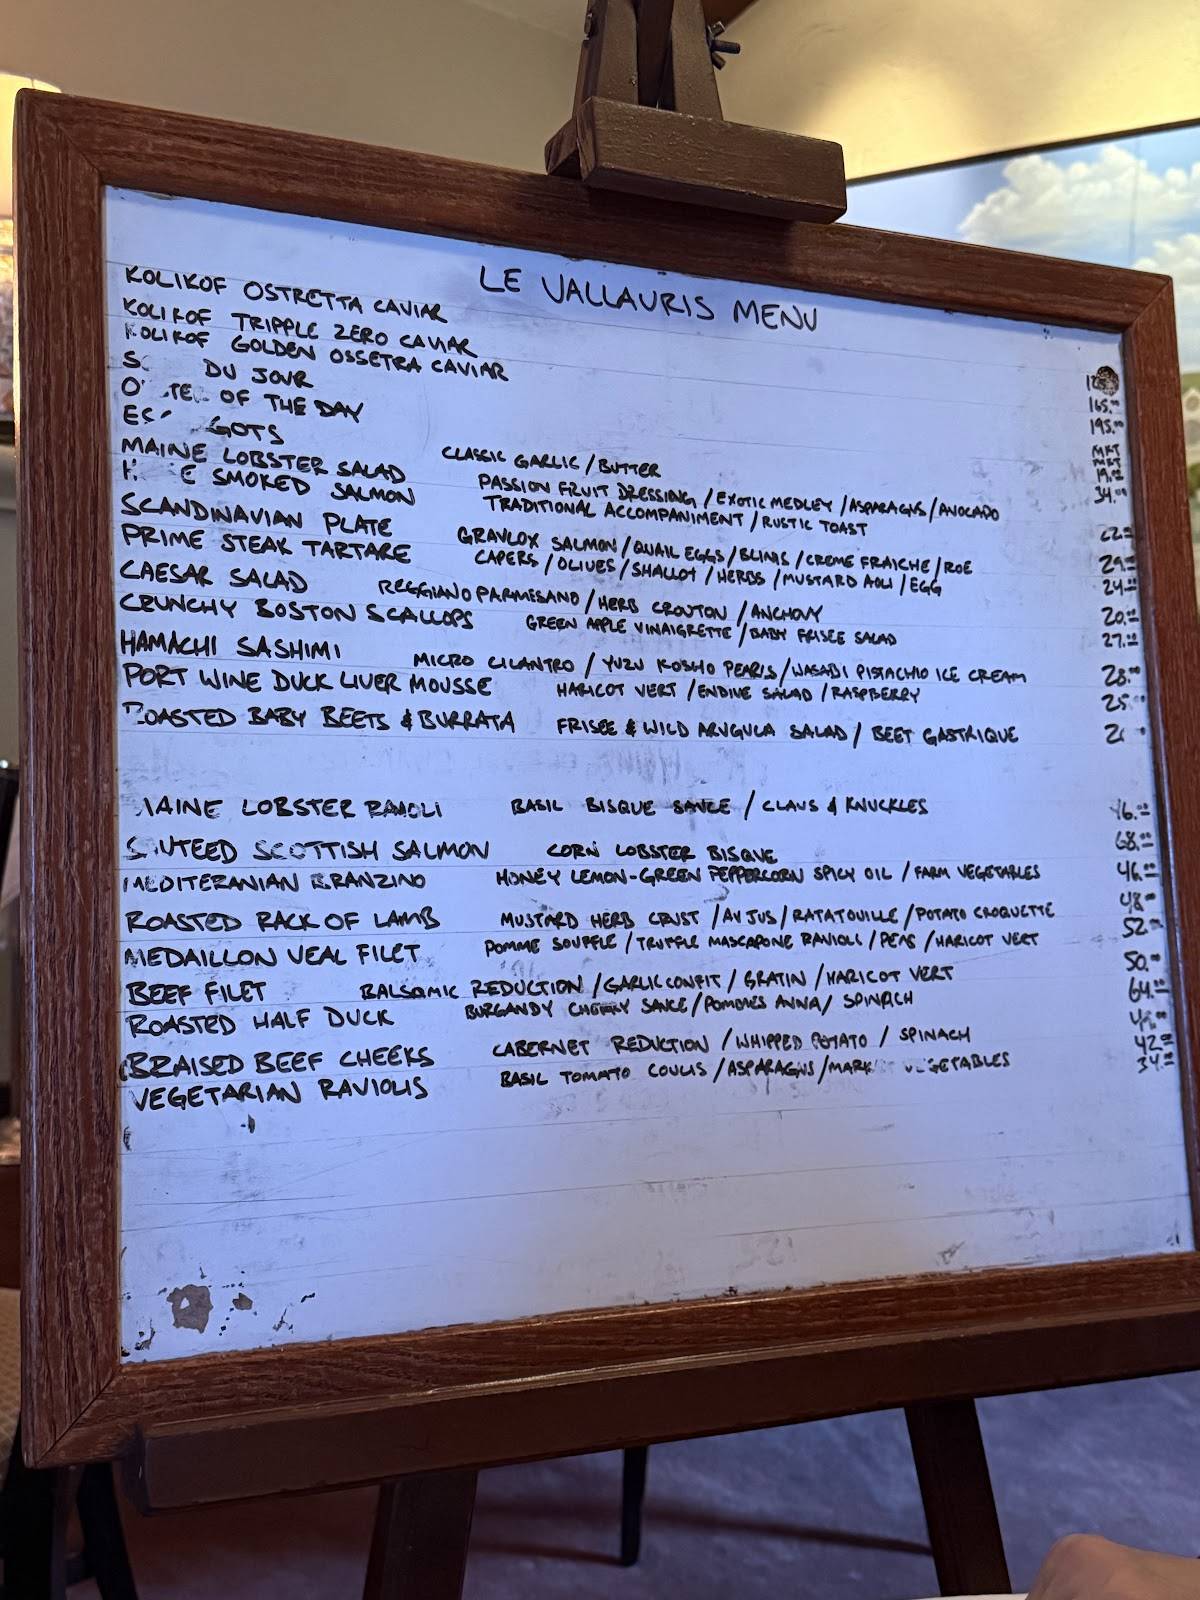 LE VALLAURIS MENU
KOLIKOF OSTRETTA CAVIAR
KOLIKOF TRIPPLE ZERO CAVIAR 165.00
KOLIKOF GOLDEN OSSETRA CAVIAR 195.00
DU JOUR MKT
OF THE DAY MKT
GOTS CLASSIC GARLIC / BUTTER 19.00
MAINE LOBSTER SALAD PASSION FRUIT DRESSING / EXOTIC MEDLEY / ASPARAGUS / AVOCADO 34.00
SMOKED SALMON TRADITIONAL ACCOMPANIMENT / RUSTIC TOAST 22.00
SCANDINAVIAN PLATE GRAVLOX SALMON / QUAIL EGGS / BLINIS / CREME FRAICHE / ROE 29.00
PRIME STEAK TARTARE CAPERS / OLIVES / SHALLOT / HERBS / MUSTARD AOLI / EGG 24.00
CAESAR SALAD REGGIANO PARMESANO / HERB CROUTON / ANCHOVY 20.00
CRUNCHY BOSTON SCALLOPS GREEN APPLE VINAIGRETTE / BABY FRISEE SALAD 27.00
HAMACHI SASHIMI MICRO CILANTRO / YUZU KOSHO PEARLS / WASABI PISTACHIO ICE CREAM 28.00
PORT WINE DUCK LIVER MOUSSE HARICOT VERT / ENDIVE SALAD / RASPBERRY 25.00
ROASTED BABY BEETS & BURRATA FRISEE & WILD ARUGULA SALAD / BEET GASTRIQUE
MAINE LOBSTER RAVIOLI BASIL BISQUE SAUCE / CLAWS & KNUCKLES
SAUTEED SCOTTISH SALMON CORN LOBSTER BISQUE
MEDITERANIAN BRANZINO HONEY LEMON-GREEN PEPPERCORN SPICY OIL / FARM VEGETABLES
ROASTED RACK OF LAMB MUSTARD HERB CRUST / AU JUS / RATATOUILLE / POTATO CROQUETTE
MEDAILLON VEAL FILET POMME SOUFFLE / TRUFFLE MASCAPONE RAVIOLI / PEAS / HARICOT VERT
BEEF FILET BALSAMIC REDUCTION / GARLIC CONFIT / GRATIN / HARICOT VERT
ROASTED HALF DUCK BURGANDY CHERRY SAUCE / POMMES ANNA / SPINACH
BRAISED BEEF CHEEKS CABERNET REDUCTION / WHIPPED POTATO / SPINACH 42.00
VEGETARIAN RAVIOLIS BASIL TOMATO COULIS / ASPARAGUS / VEGETABLES 34.00